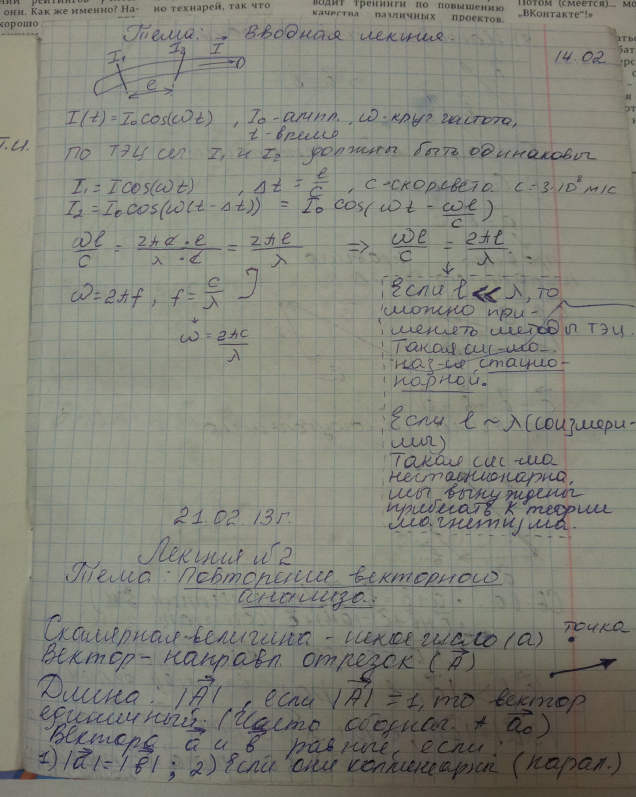 они. Как же именно? На-
но технарей, так что
водит тренинги по повышению
качества различных проектов.
Потом (смеётся)... мо
"ВКонтакте"!»
Тема: Вводная лекция.
14.02
I₁ I₂ I
ℓ
I(t) = I₀cos(ωt) , I₀-ампл., ω-круг частота,
t-время
Т.и.
по ТЭЦ сст I₁ и I₂ должны быть одинаковы
I₁ = Icos(ωt) , Δt = ℓ/c , c-скор света c=3·10⁸ м/с
I₂ = I₀cos(ω(t-Δt)) = I₀ cos(ωt - ωℓ/c)
ωℓ/c = 2πc·ℓ/λ·c = 2πℓ/λ => ωℓ/c = 2πℓ/λ
ω=2πf , f = c/λ
ω = 2πc/λ
Если ℓ << λ, то
можно при-
менять методы ТЭЦ.
Такая сис-ма
наз-ся стацио-
нарной.
Если ℓ ~ λ (соизмери-
мы)
Такая сис-ма
нестационарна,
мы вынуждены
прибегать к теории
магнетизма.
21.02.13г.
Лекция №2
Тема: Повторение векторного
анализа.
Скалярная-величина - некое число (a) точка
Вектор - направл. отрезок (A⃗)
Длина: |A⃗| , если |A⃗| = 1, то вектор
единичный. (Часто a⃗₀)
Вектора a⃗ и b⃗ равные, если:
1) |a⃗| = |b⃗| ; 2) Если они коллинеарны (парал.)